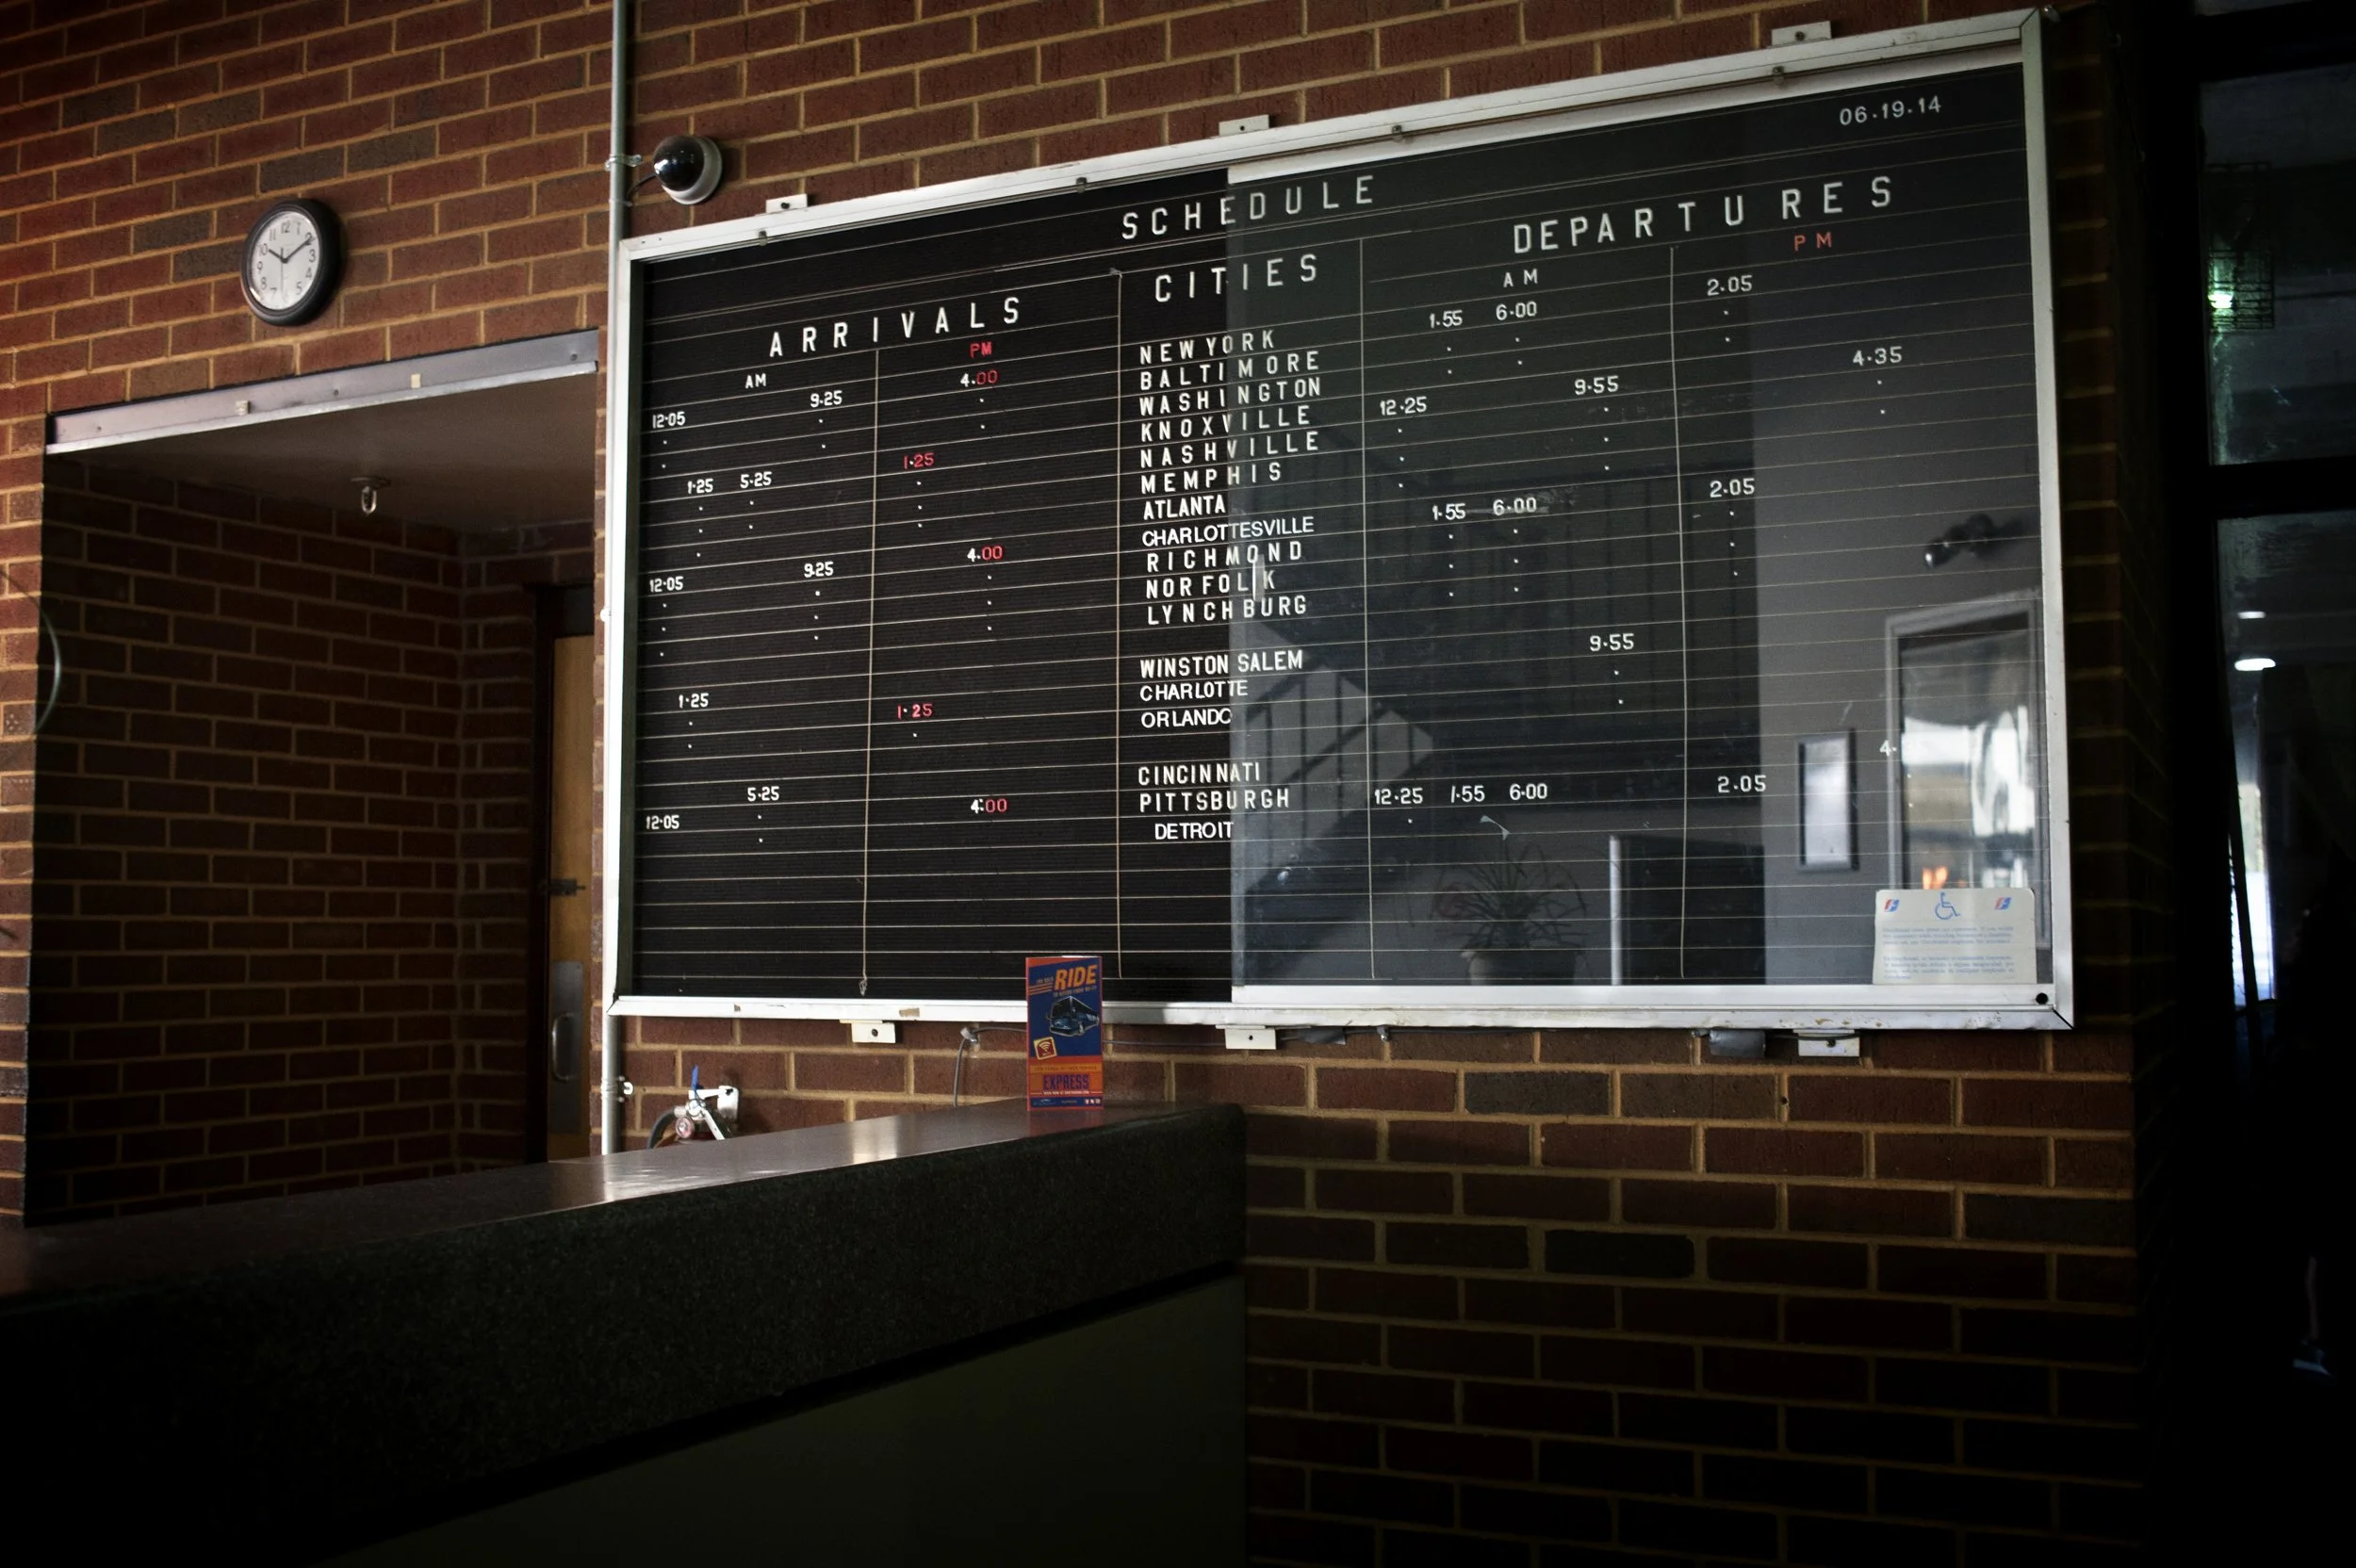 06·19·14
SCHEDULE
ARRIVALS CITIES DEPARTURES
AM PM AM PM
12·05 9·25 4·00 NEW YORK 1·55 6·00 2·05
BALTIMORE
WASHINGTON
1·25 5·25 1·25 KNOXVILLE 12·25 9·55 4·35
NASHVILLE
MEMPHIS
ATLANTA
12·05 9·25 4·00 CHARLOTTESVILLE 1·55 6·00 2·05
RICHMOND
NORFOLK
LYNCHBURG
1·25 1·25 WINSTON SALEM 9·55
CHARLOTTE
ORLANDO
5·25 CINCINNATI 4·
12·05 4:00 PITTSBURGH 12·25 1·55 6·00 2·05
DETROIT
12 1 2 3 4 5 7 8 9 10 11
RIDE
EXPRESS